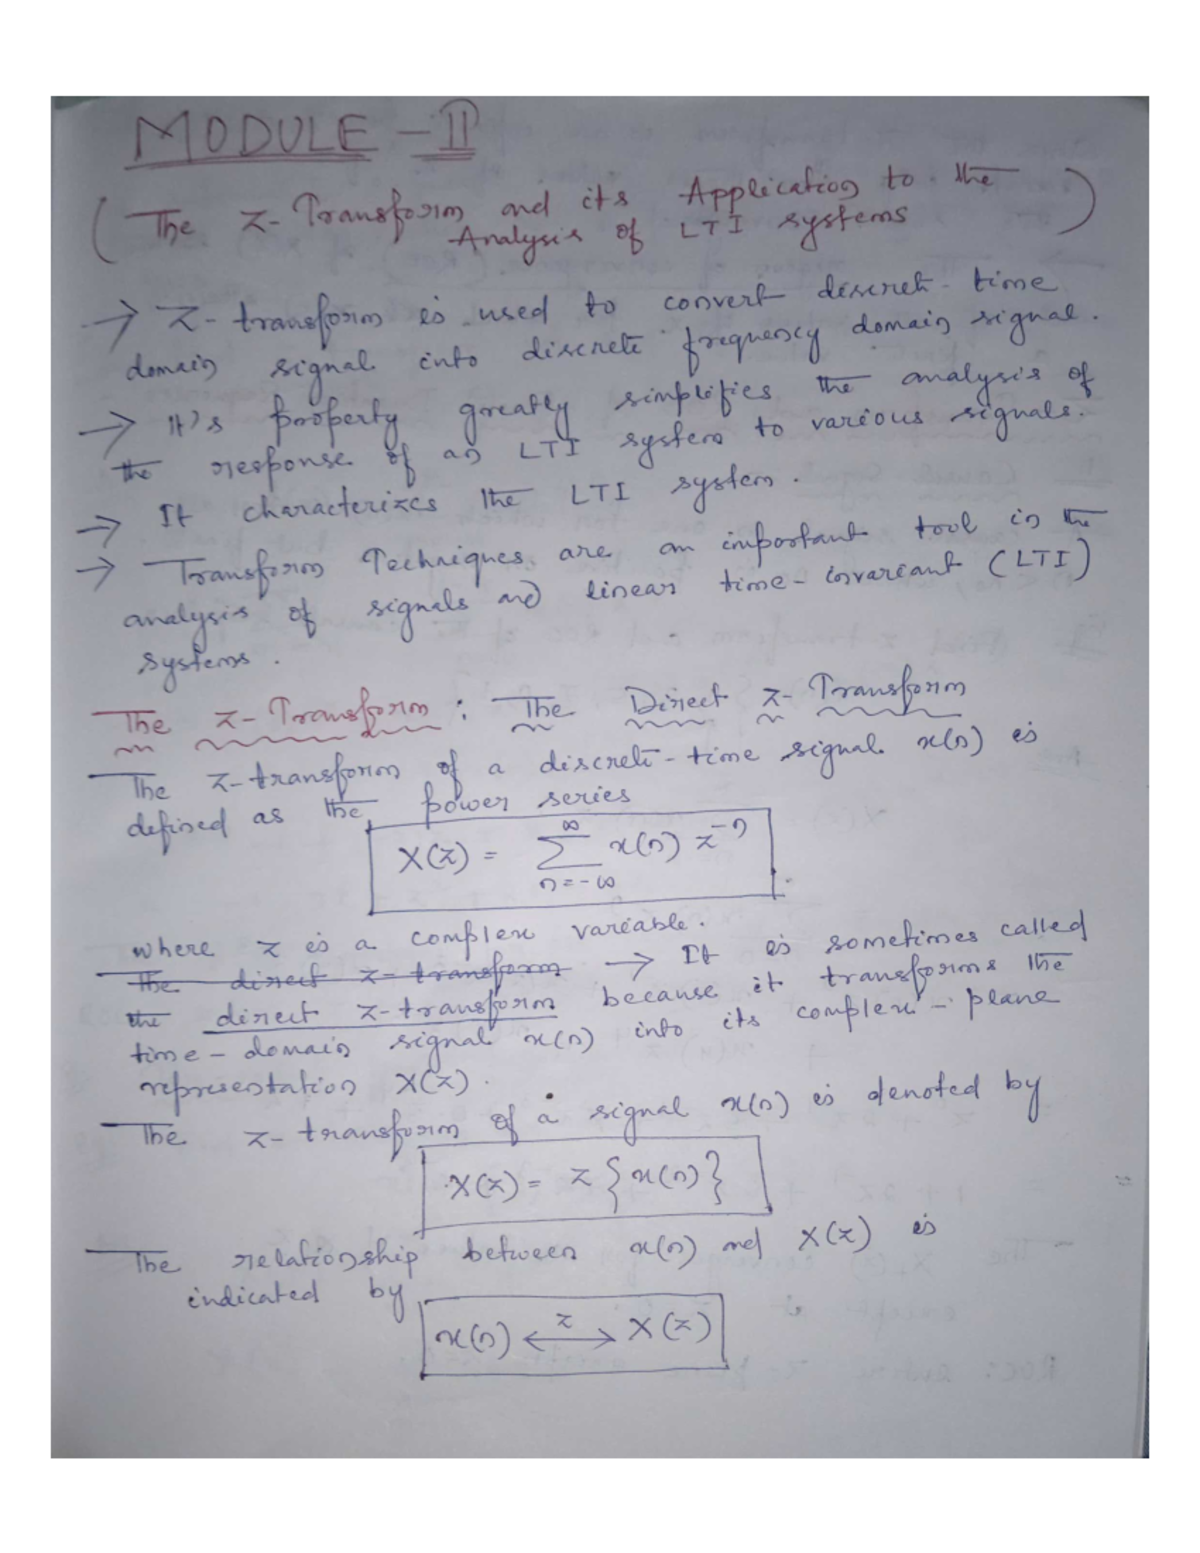 MODULE - II
( The Z-Transform and its Application to the
Analysis of LTI systems )
→ Z-transform is used to convert discrete-time
domain signal into discrete frequency domain signal.
→ It's property greatly simplifies the analysis of
the response of an LTI system to various signals.
→ It characterizes the LTI system.
→ Transform Techniques are an important tool in the
analysis of signals and linear time-invariant (LTI)
systems.
The z-Transform : The Direct z-Transform
The z-transform of a discrete-time signal x(n) is
defined as the power series
X(z) = ∑_{n=-∞}^{∞} x(n) z^{-n}
where z is a complex variable.
The direct z-transform → It is sometimes called
the direct z-transform because it transforms the
time-domain signal x(n) into its complex-plane
representation X(z).
The z-transform of a signal x(n) is denoted by
X(z) = z{x(n)}
The relationship between x(n) and X(z) is
indicated by
x(n) ⟷^{z} X(z)